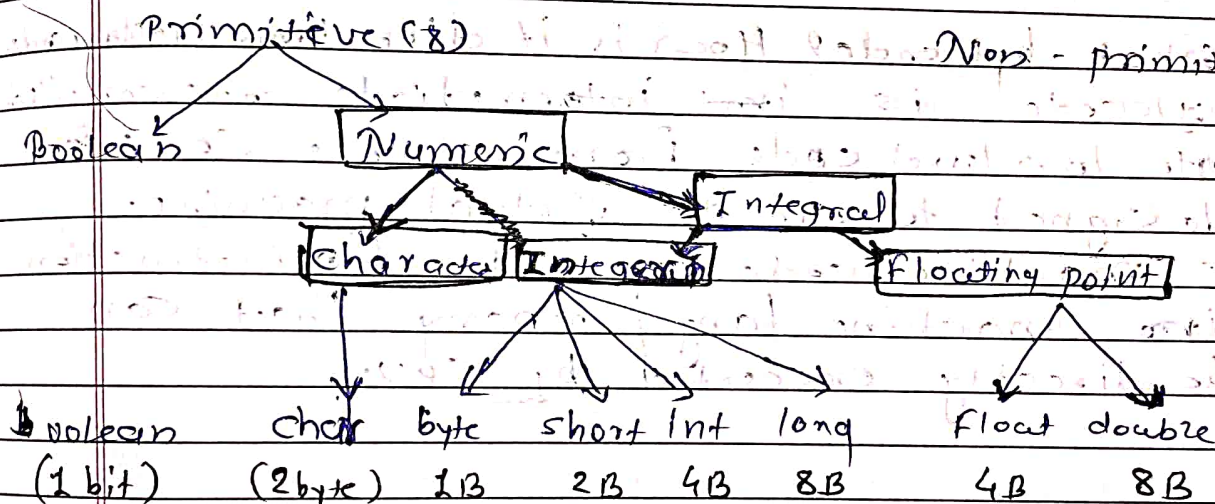 Primitive (8) Non - primit
Boolean Numeric
Integral
Character Integer Floating point
boolean char byte short Int long Float double
(1 bit) (2byte) 1B 2B 4B 8B 4B 8B